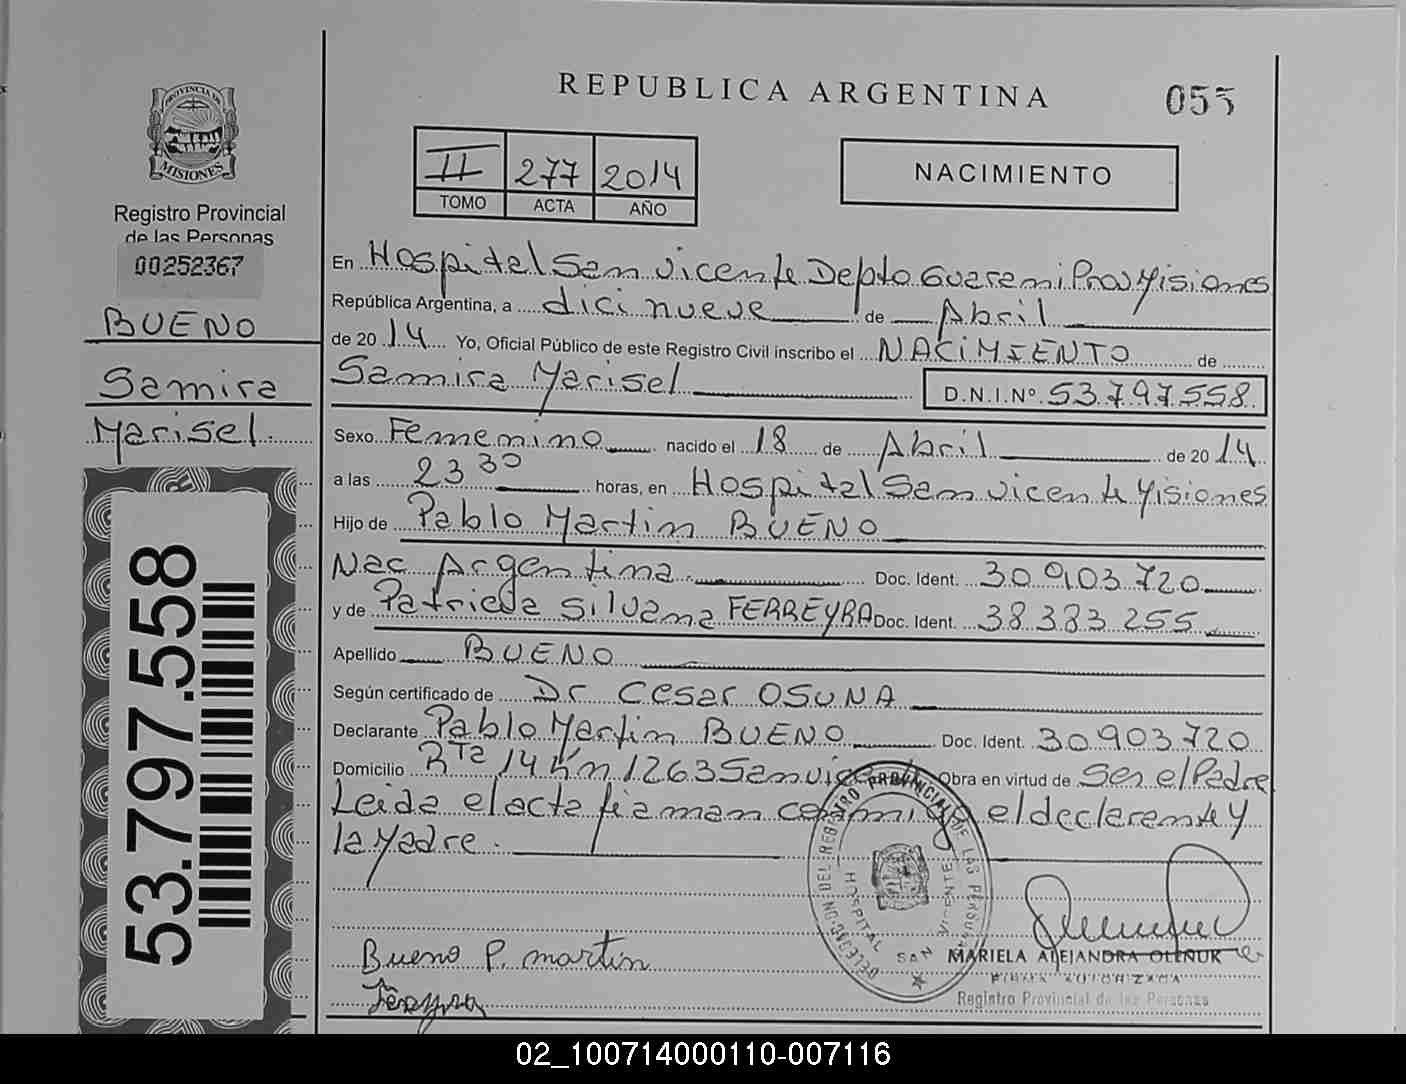 REPUBLICA ARGENTINA
055
PROVINCIA DE
MISIONES
Registro Provincial
de las Personas
00252367
BUENO
Samira
Marisel
53.797.558
II 277 2014
TOMO ACTA AÑO
NACIMIENTO
En Hospital San Vicente Depto Guarani Prov Misiones
República Argentina, a dici nueve de Abril
de 2014 Yo, Oficial Público de este Registro Civil inscribo el NACIMIENTO de
Samira Marisel D.N.I.Nº 53.797.558
Sexo Femenino nacido el 18 de Abril de 2014
a las 23 30 horas, en Hospital San Vicente Misiones
Hijo de Pablo Martin BUENO
Nac Argentina Doc. Ident. 30 903 720
y de Patricia Silvana FERREYRA Doc. Ident. 38 383 255
Apellido BUENO
Según certificado de Dr Cesar OSUNA
Declarante Pablo Martin BUENO Doc. Ident. 30 903 720
Domicilio Rta 14 Km 1263 San Vicente Obra en virtud de Ser el Padre
Leida el acta firman conmigo el declarante y
la Madre.
DELEGACION DEL REGISTRO PROVINCIAL DE LAS PERSONAS
HOSPITAL SAN VICENTE
Bueno P. martin
Ferreyra
MARIELA ALEJANDRA OLENUK
FIRMA AUTORIZADA
Registro Provincial de las Personas
02_100714000110-007116